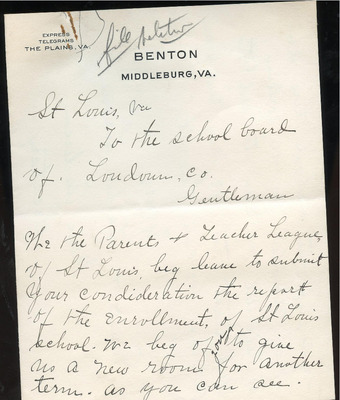 EXPRESS
TELEGRAMS
THE PLAINS, VA.
file petition
BENTON
MIDDLEBURG, VA.
St Louis, Va
To the school board
of. Loudoun, Co.
Gentleman
We the Parents + Teacher League,
of St Louis, beg leave to submit
your condideration the report
of the enrollment, of St Louis
school. We beg of you to give
us a new room for another
term. as you can see.